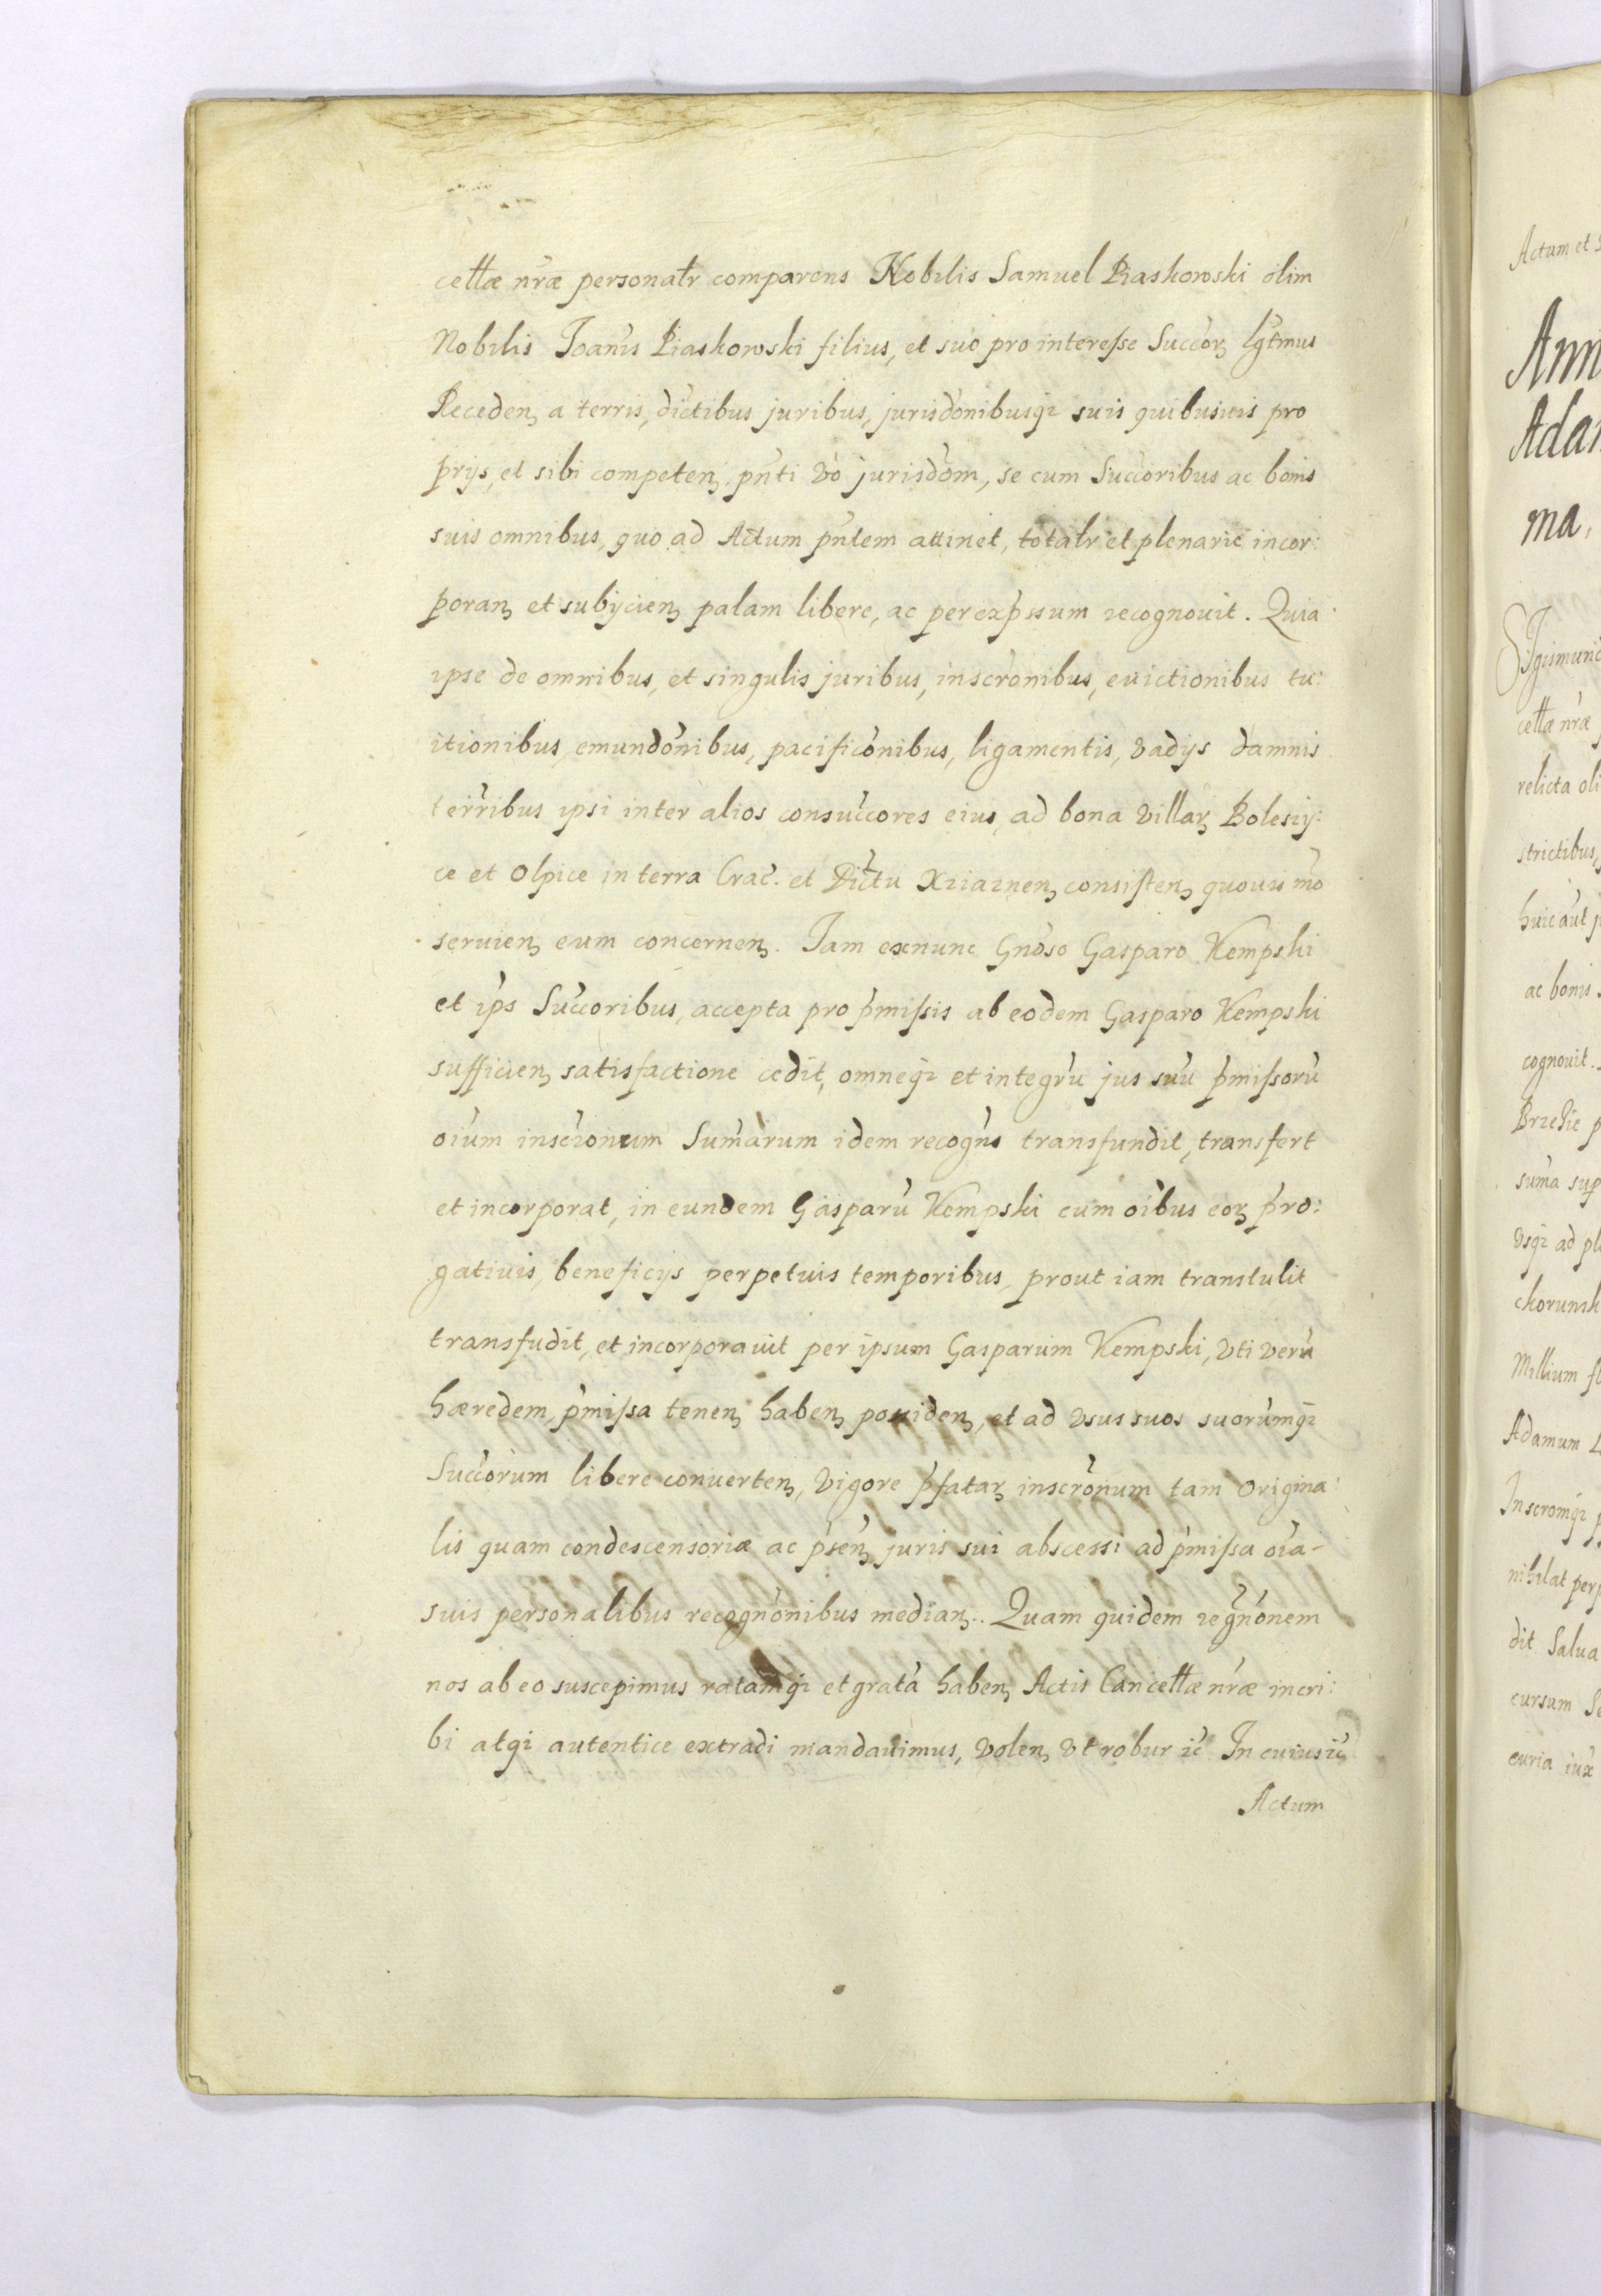 cellæ nr̃æ personalr̃ comparens Nobilis Samuel Piaskowski olim
Nobilis Joañis Piaskowski filius, et suo pro interesse Succor̃ lg̃tmus
Receden, a terris, dic̃tibus juribus, jurisdõnibusq; suis quibusuis pro
prijs, et sibi competen, pñti võ jurisdõm, se cum Succ̃oribus ac bonis
suis omnibus, quo ad Actum pñtem attinet, totalr̃ et plenarie incor:
poran, et subijcien, palam libere, ac per exp̃ssum recognouit. Quia
ipse de omnibus, et singulis juribus, inscr̃onibus, euictionibus tu:
itionibus, emundõnibus, pacificõnibus, ligamentis, vadijs damnis
terr̃ibus ipsi inter alios consucc̃ores eius, ad bona villar,
ce et Olpice in terra Crac̃. et Dic̃tu consisten, quouis mõ
seruien, eum concernen. Jam exnunc Gnõso Gasparo Kempski
et ip̃s Succ̃oribus, accepta pro p̃missis ab eodem Gasparo Kempski
sufficien, satisfactione cedit, omneq; et integrũ jus suũ p̃missorũ
oĩum inscr̃ionum Sum̃arum idem recogñs transfundit, transfert
et incorporat, in eundem Gasparũ Kempski cum oĩbus eor, p̃ro:
gatiuis, beneficijs perpetuis temporibus, prout iam transtulit
transfudit, et incorporauit per ipsum Gasparum Kempski, vti verũ
hæredem, p̃missa tenen, haben, possiden, et ad vsus suos suorumq;
Succ̃orum libere conuerten, vigore p̃fatar, inscr̃onum tam origina:
lis quam condescensoriæ ac p̃sen, juris sui abscessi ad p̃missa oĩa-
suis personalibus recognõnibus median,. Quam quidem regñonem
nos ab eo suscepimus ratamq; et gratã haben, Actis Cancellæ nr̃æ incri:
bi atq; autentice extradi mandauimus, volen, vt robur &c̃ In cuius &c̃
Actum
Actum et
Ann
Adam
ma,
Sigismund
cellæ nr̃æ
relicta oli
strictibus,
huic aut̃
ac bonis
cognouit.
sum̃a sup
vsq; ad pl
Millium fl
Adamum
Inscromq;
nihilat perp
dit Salua
cursum
curia iux̃